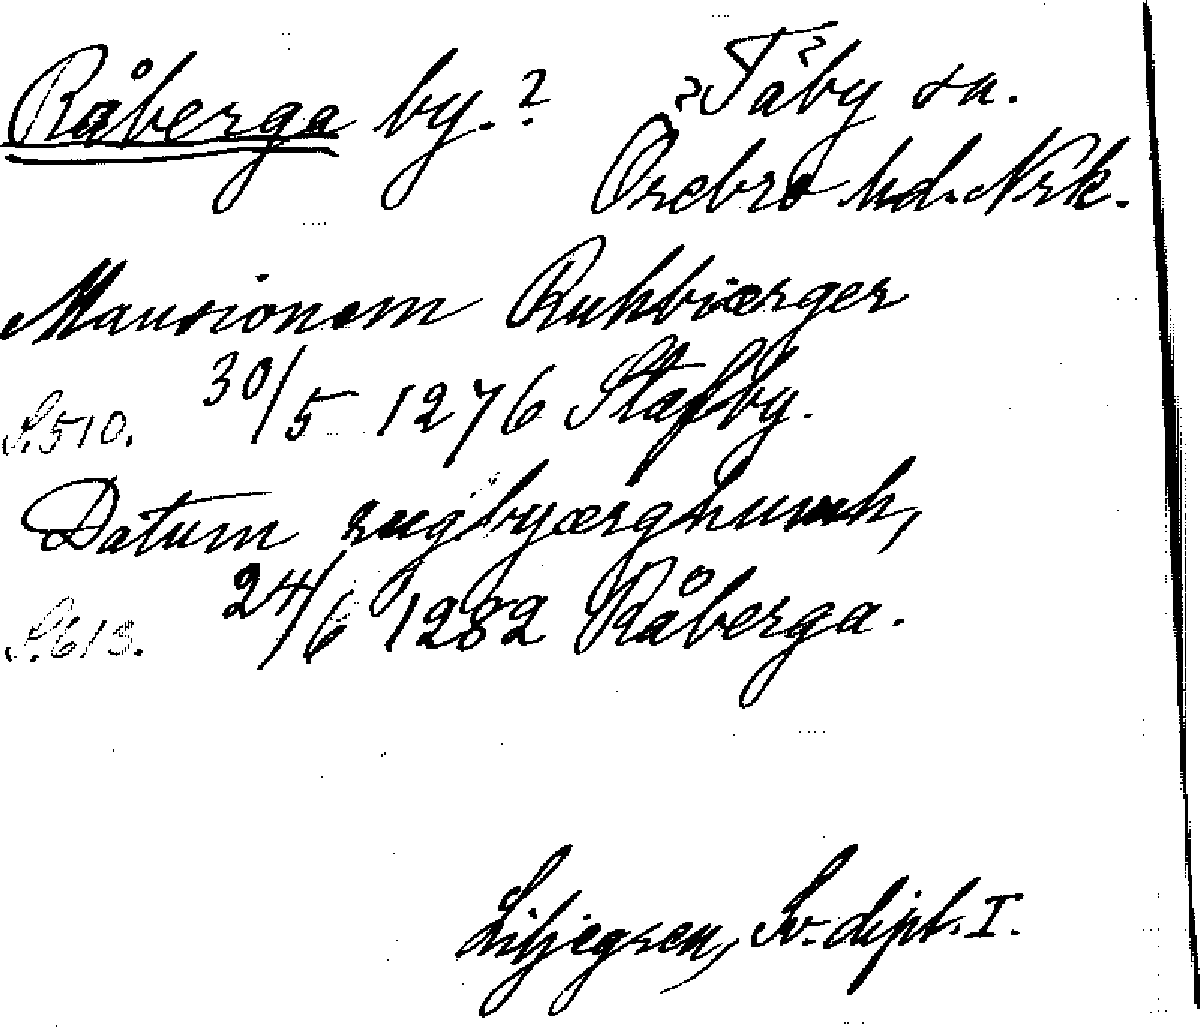 Råberga by.? ?Täby sn.
Örebro hd. Nrk.
Mansionem Ruhbiærger
S.510. 30/5 1276 Stafby.
Datum rugbyærghum,
S.613. 24/6 1282 Råberga.
Liljegren, Sv. dipl. I.